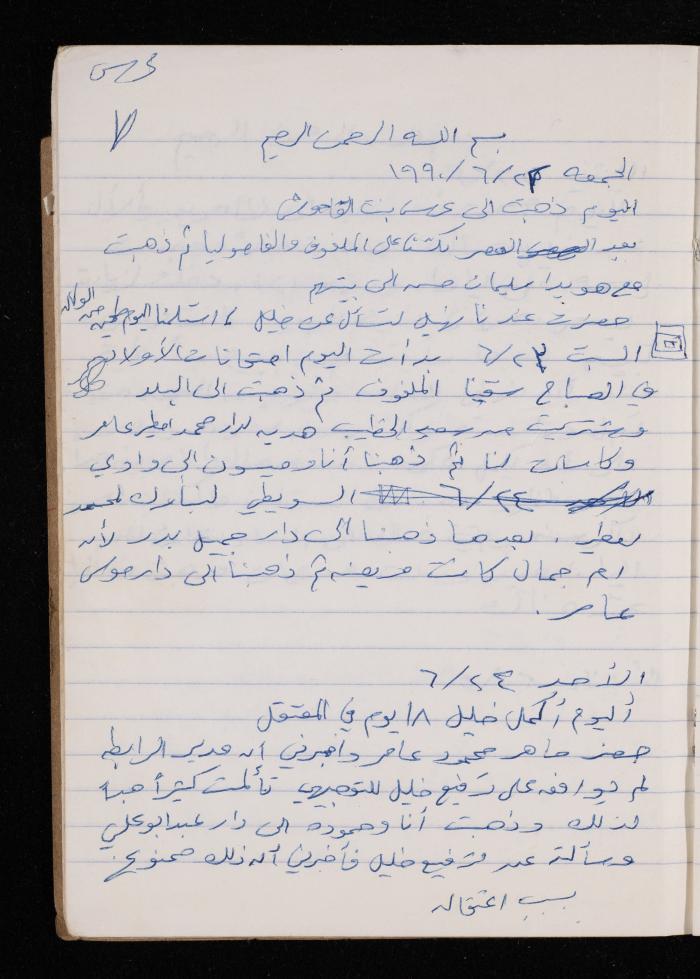 عرس
٧
بسم الله الرحمن الرحيم
الجمعه ٢٢/٦/١٩٩٠
اليوم ذهبت الى عرس بنت
بعد العصر نكشنا على الملفوف والفاصوليا ثم ذهبت
مع هويدا سليمان حسن الى بيتهم
حضرت عندنا نهيل لتسأل عن خليل / استلمنا اليوم طحين من الوكاله
السبت ٢٣/٦ بدأت اليوم امتحانات الأولاد
في الصباح سقينا الملفوف ثم ذهبت الى البلد
وشتريت من سعيد الخطيب هديه لدار محمد مطير عامر
وكاسات لنا ثم ذهبنا أنا وميسون الى وادي
٢٤/٦ السويطي لنبارك لمحمد
مطير . بعدها ذهبنا الى دار جميل بدر لأن
ام جمال كانت مريضه ثم ذهبنا الى دار موسى
عامر .
الأحد ٢٤/٦
أليوم أكمل خليل ١٨ يوم في المعتقل
حضر ماهر محمود عامر واخبرني أن مدير الرابطه
لم يوافق على ترفيع خليل للتوجيهي تألمت كثيراً جداً
لذلك وذهبت أنا وحموده الى دار عبد ابو علي
وسألته عن ترفيع خليل فأخبرني أن ذلك ممنوع .
بسبب اعتقاله